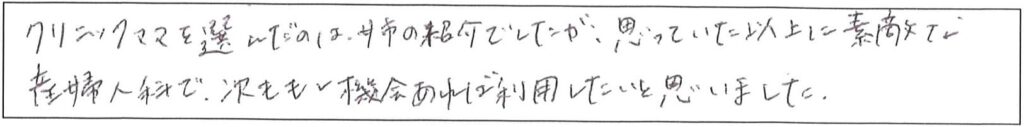 クリニックママを選んだのは、姉の紹介でしたが、思っていた以上に素敵な
産婦人科で、次ももし機会あれば利用したいと思いました.